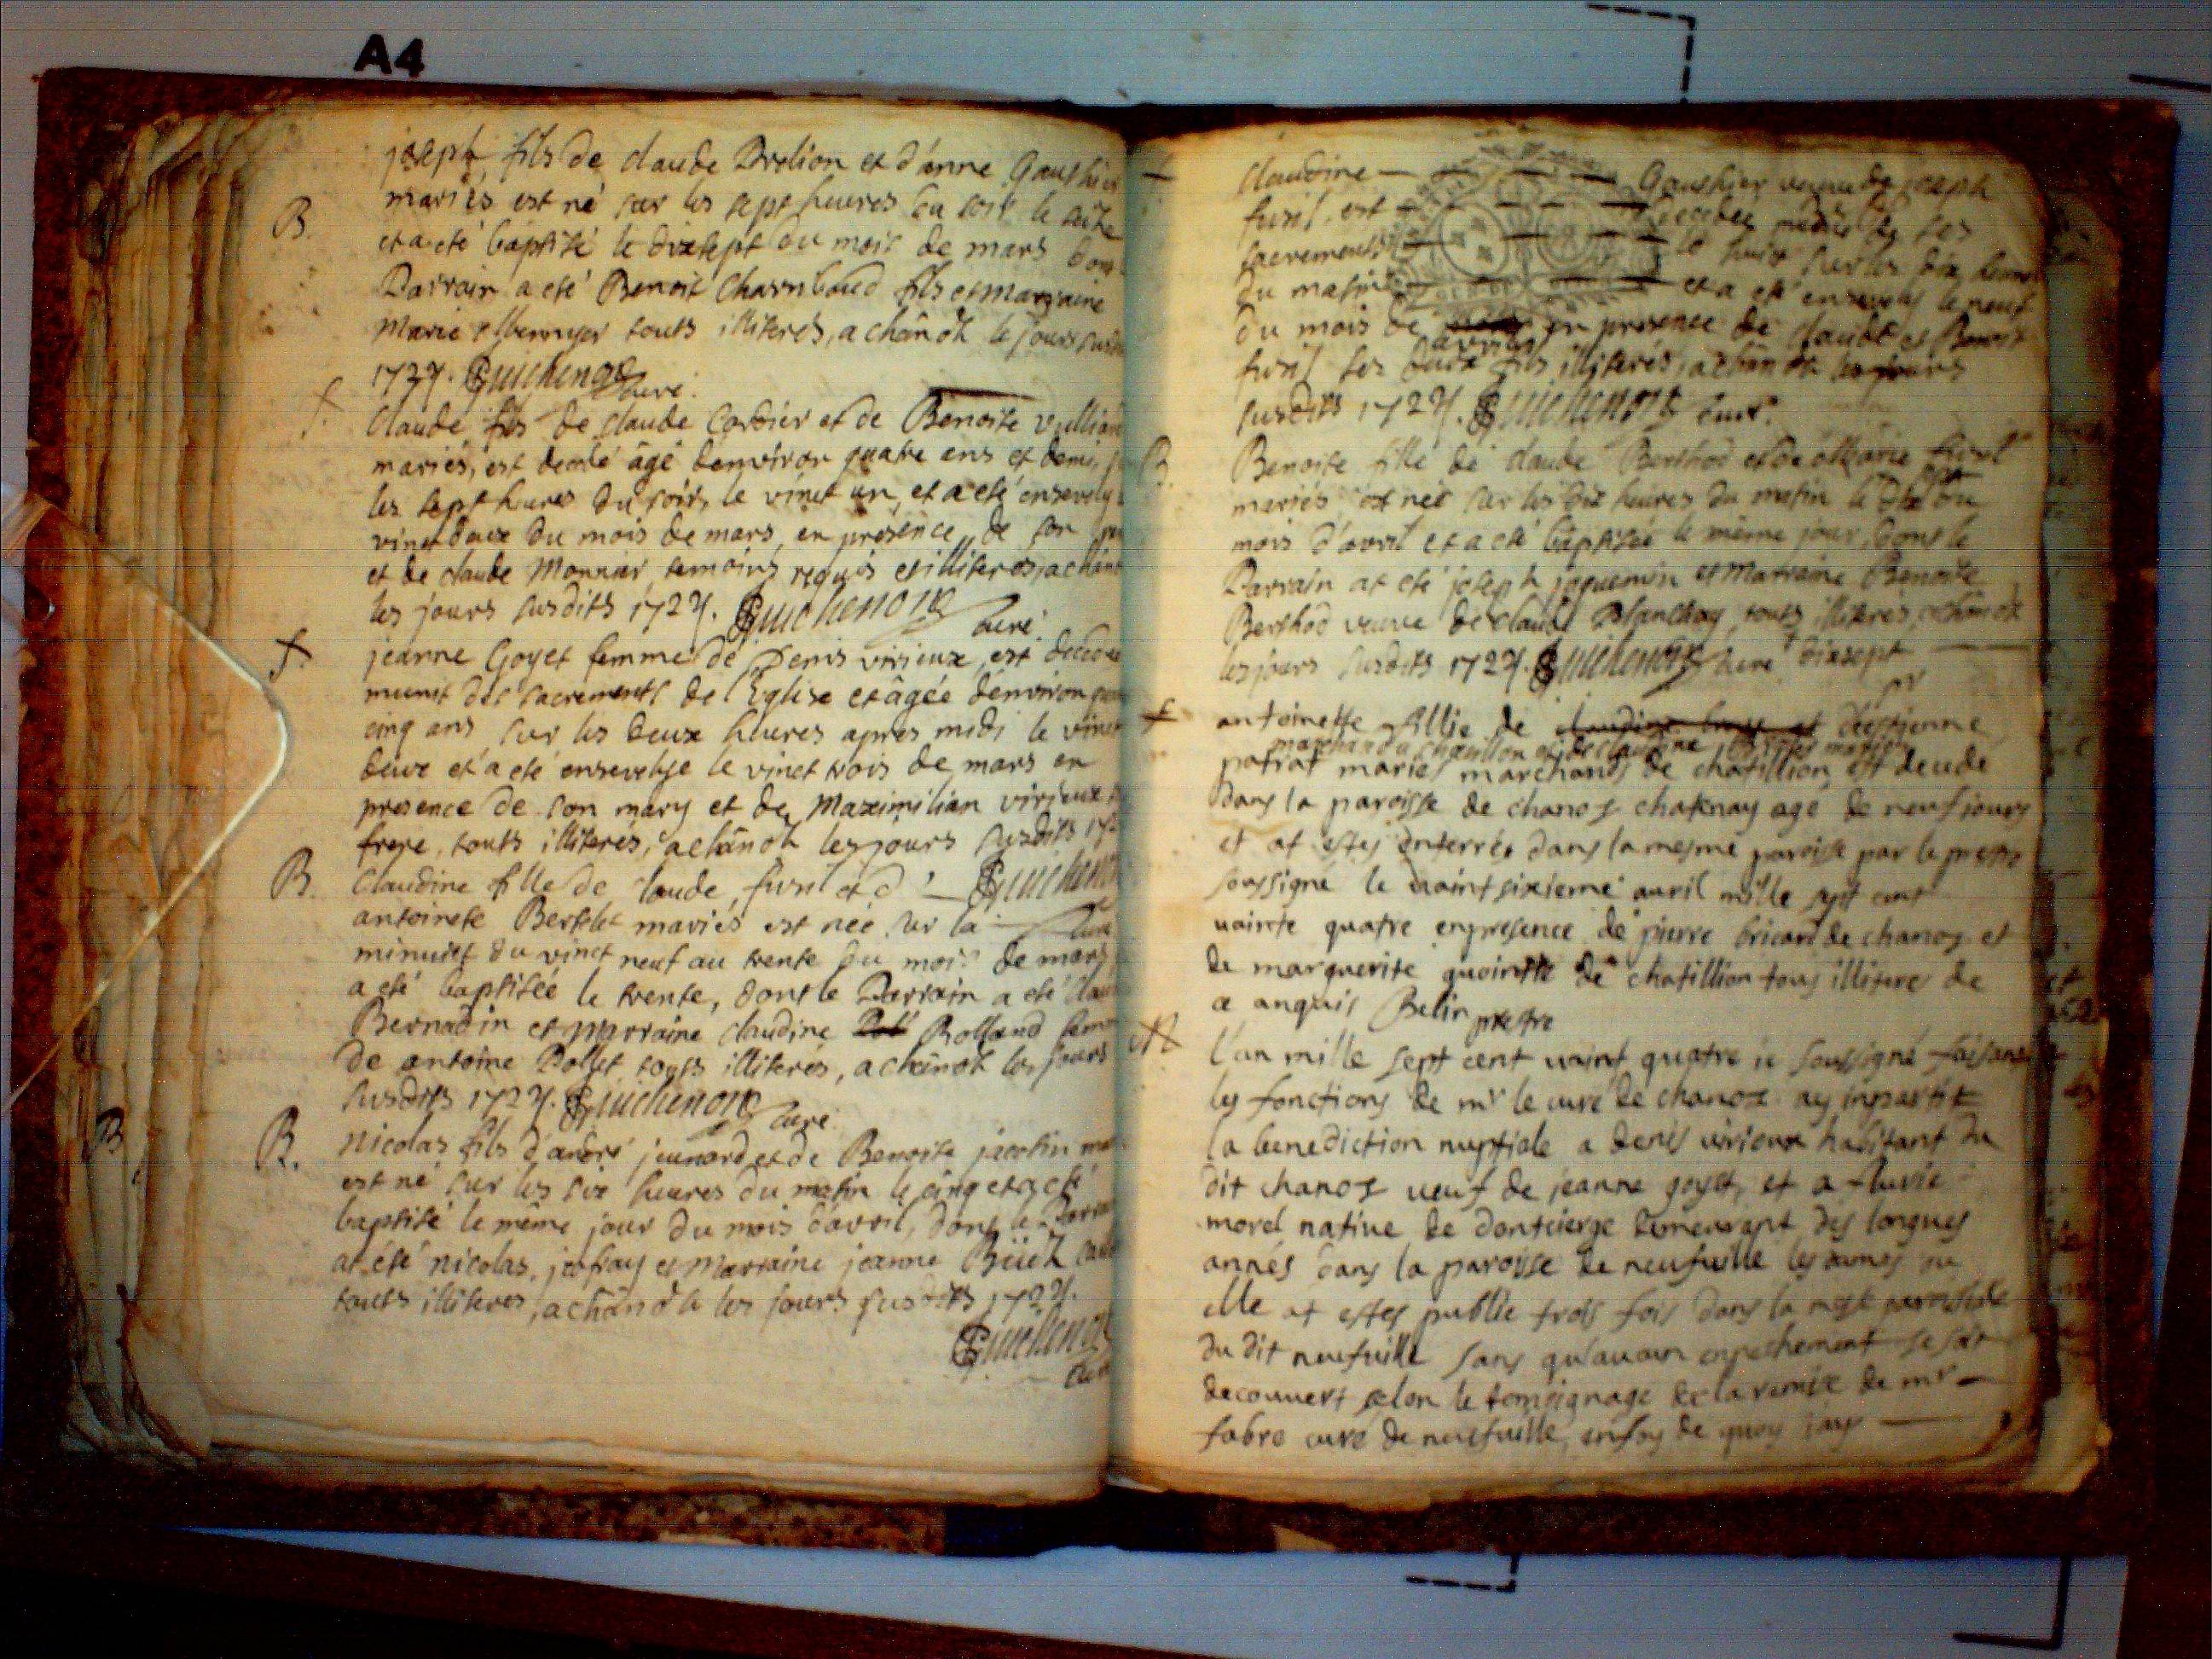 A4
joseph, fils de claude Brelion et d'anne Gauthier
mariés est né sur les sept heures du soir le seize
B.
et a eté baptisé le dixsept du mois de mars dont
Parrain a eté Benoit Charnbaud fils et marraine
Marie touts illiterés, a chânoz le jours susdits
1724. Guichenon curé.
†
Claude fils de claude Cordier et de Benoite Vulliand
mariés, est decedé âgé denviron quatre ans et demi,
les sept heures du soir, le vinct un, et a eté ensevely
vinctdeux du mois de mars, en presence de son
et de claude Monnier temoins requis et illiterés, a chânoz
les jours susdits 1724. Guichenon curé.
†
jeanne Goyet femme de Denis virieux, est decedée
munit des sacrements de l'Eglise et âgée denviron
cinq ans sur les deux heures apres midi le vinct
deux et a eté ensevelye le vinct trois de mars en
presence de son mary et de Maximilian virieux
frere, touts illiterés, a chânoz les jours susdits 172
B.
Claudine fille de claude, furil et d' Guichenon
antoinete Berthet mariés est née sur la curé
minuict du vinct neuf au trente du mois de mars
a eté baptisée le trente, dont le Parrain a eté claude
Bernadin et marraine claudine Rolland femme
de antoine Pollet touts illiterés, a chânoz les jours
susdits 1724. Guichenon curé.
B
B.
Nicolas fils d'andré jeunard et de Benoite jacolin
est né sur les six heures du matin le cinq et a eté
baptisé le même jour du mois d'avril, dont le Parrain
at eté nicolas, jofray et Marraine jeanne Büiek
touts illiterés, a chânoz les jours susdits 1724.
Guichenon
curé
†
Claudine Gauthier veuve de joseph
furil est decedée munie de ses
sacrements le huict sur les dix heures
du matin et a eté ensevely le neuf
du mois de avril en presence de claude et Benoit
furil ses deux fils illiterés, a chânoz les jours
susdits 1724. Guichenon curé.
B.
Benoite fille de claude Berthod et de Marie furil
mariés est née sur les dix heures du matin le dix sept du
mois d'avril et a eté baptisée le même jour, dont le
Parrain at eté joseph joquemin et Marraine Benoite
Berthod veuve de claude Blanchay touts illiterés, a chânoz
les jours susdits 1724. Guichenon curé dixsept
†
antoinette fillie de d'estienne
marchand a chatillion et de claudine mariés
patrat mariés marchands de chatillion est decede
dans la paroisse de chanos chatenay agé de neuf jours
et at estes enterrée dans la mesme paroisse par le prestre
soussigné le vaint sixieme auril mille sept cent
vainte quatre en presence de pierre bricard de chanos et
de marguerite quointte de chatillion tous illiteres de
ce anquis Belin prestre
l'an mille sept cent vaint quatre ie soussigné faisant
les fonctions de mr le curé de chanos ay inpartit
la benediction nuptiale a denis virieux habitant du
dit chanos veuf de jeanne goyet, et a fluvie
morel native de dontcierge demeurant des longues
annés dans la paroisse de neufville les dames
elle at estes publie trois fois dans la messe parroisiale
du dit neufville sans qu'aucun enpechement se soit
decouvert selon le temoignage de la remise de mr
fabre curé de neufville, en foy de quoy jay